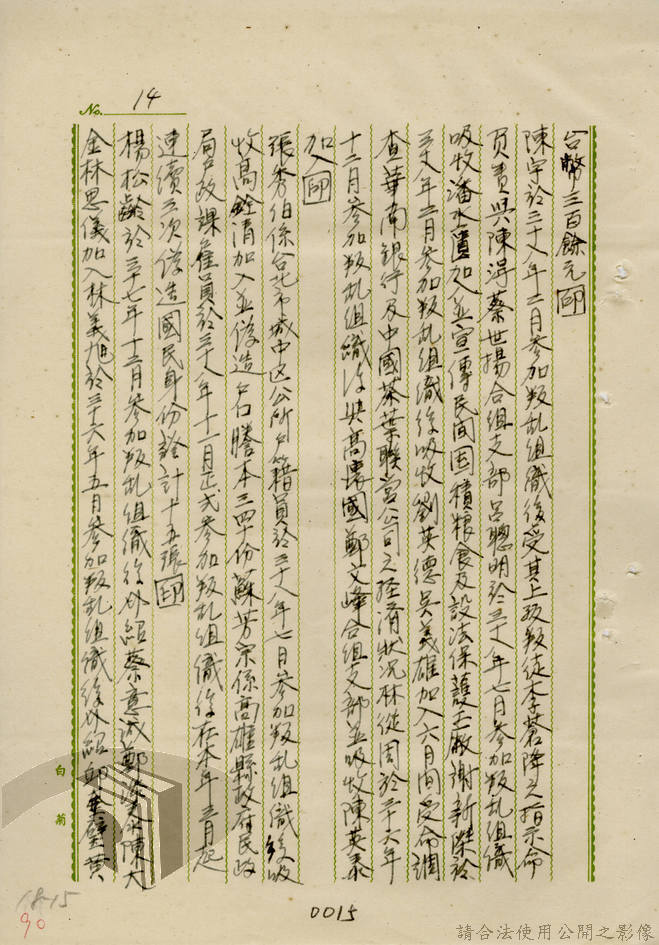 No. 14
台幣三百餘元 印
陳宇於三十八年二月參加叛乱組織後受其上級叛徒李蒼降之指示命
負責與陳淂蔡世揚合組支部呂聰明於三十八年七月參加叛乱組織
吸收潘水匱加入並宣傳民間囤積粮食及設法保護工廠謝新傑於
三十八年二月參加叛乱組織後吸收劉英德吳義雄加入六月間受命調
查華南銀行及中國茶葉聯營公司之經濟狀況林從周於三十六年
十二月參加叛乱組織後與高懷國鄭文峰合組支部並吸收陳英泰
加入 印
張秀伯係台北市城中区公所户籍員於三十八年七月參加叛乱組織後吸
收高銓清加入並偽造户口謄本三四十份蘇芳宗係高雄縣政府民政
局户政課雇員於三十八年十一月正式參加叛乱組織後在本年三月起
連續三次偽造國民身份證計十五張 印
楊松齡於三十七年十二月參加叛乱組織後介紹蔡意誠鄭陳大
金林思儀加入林義旭於三十六年五月參加叛乱組織後介紹邱黄
白菊
1815
90
0015
請合法使用公開之影像